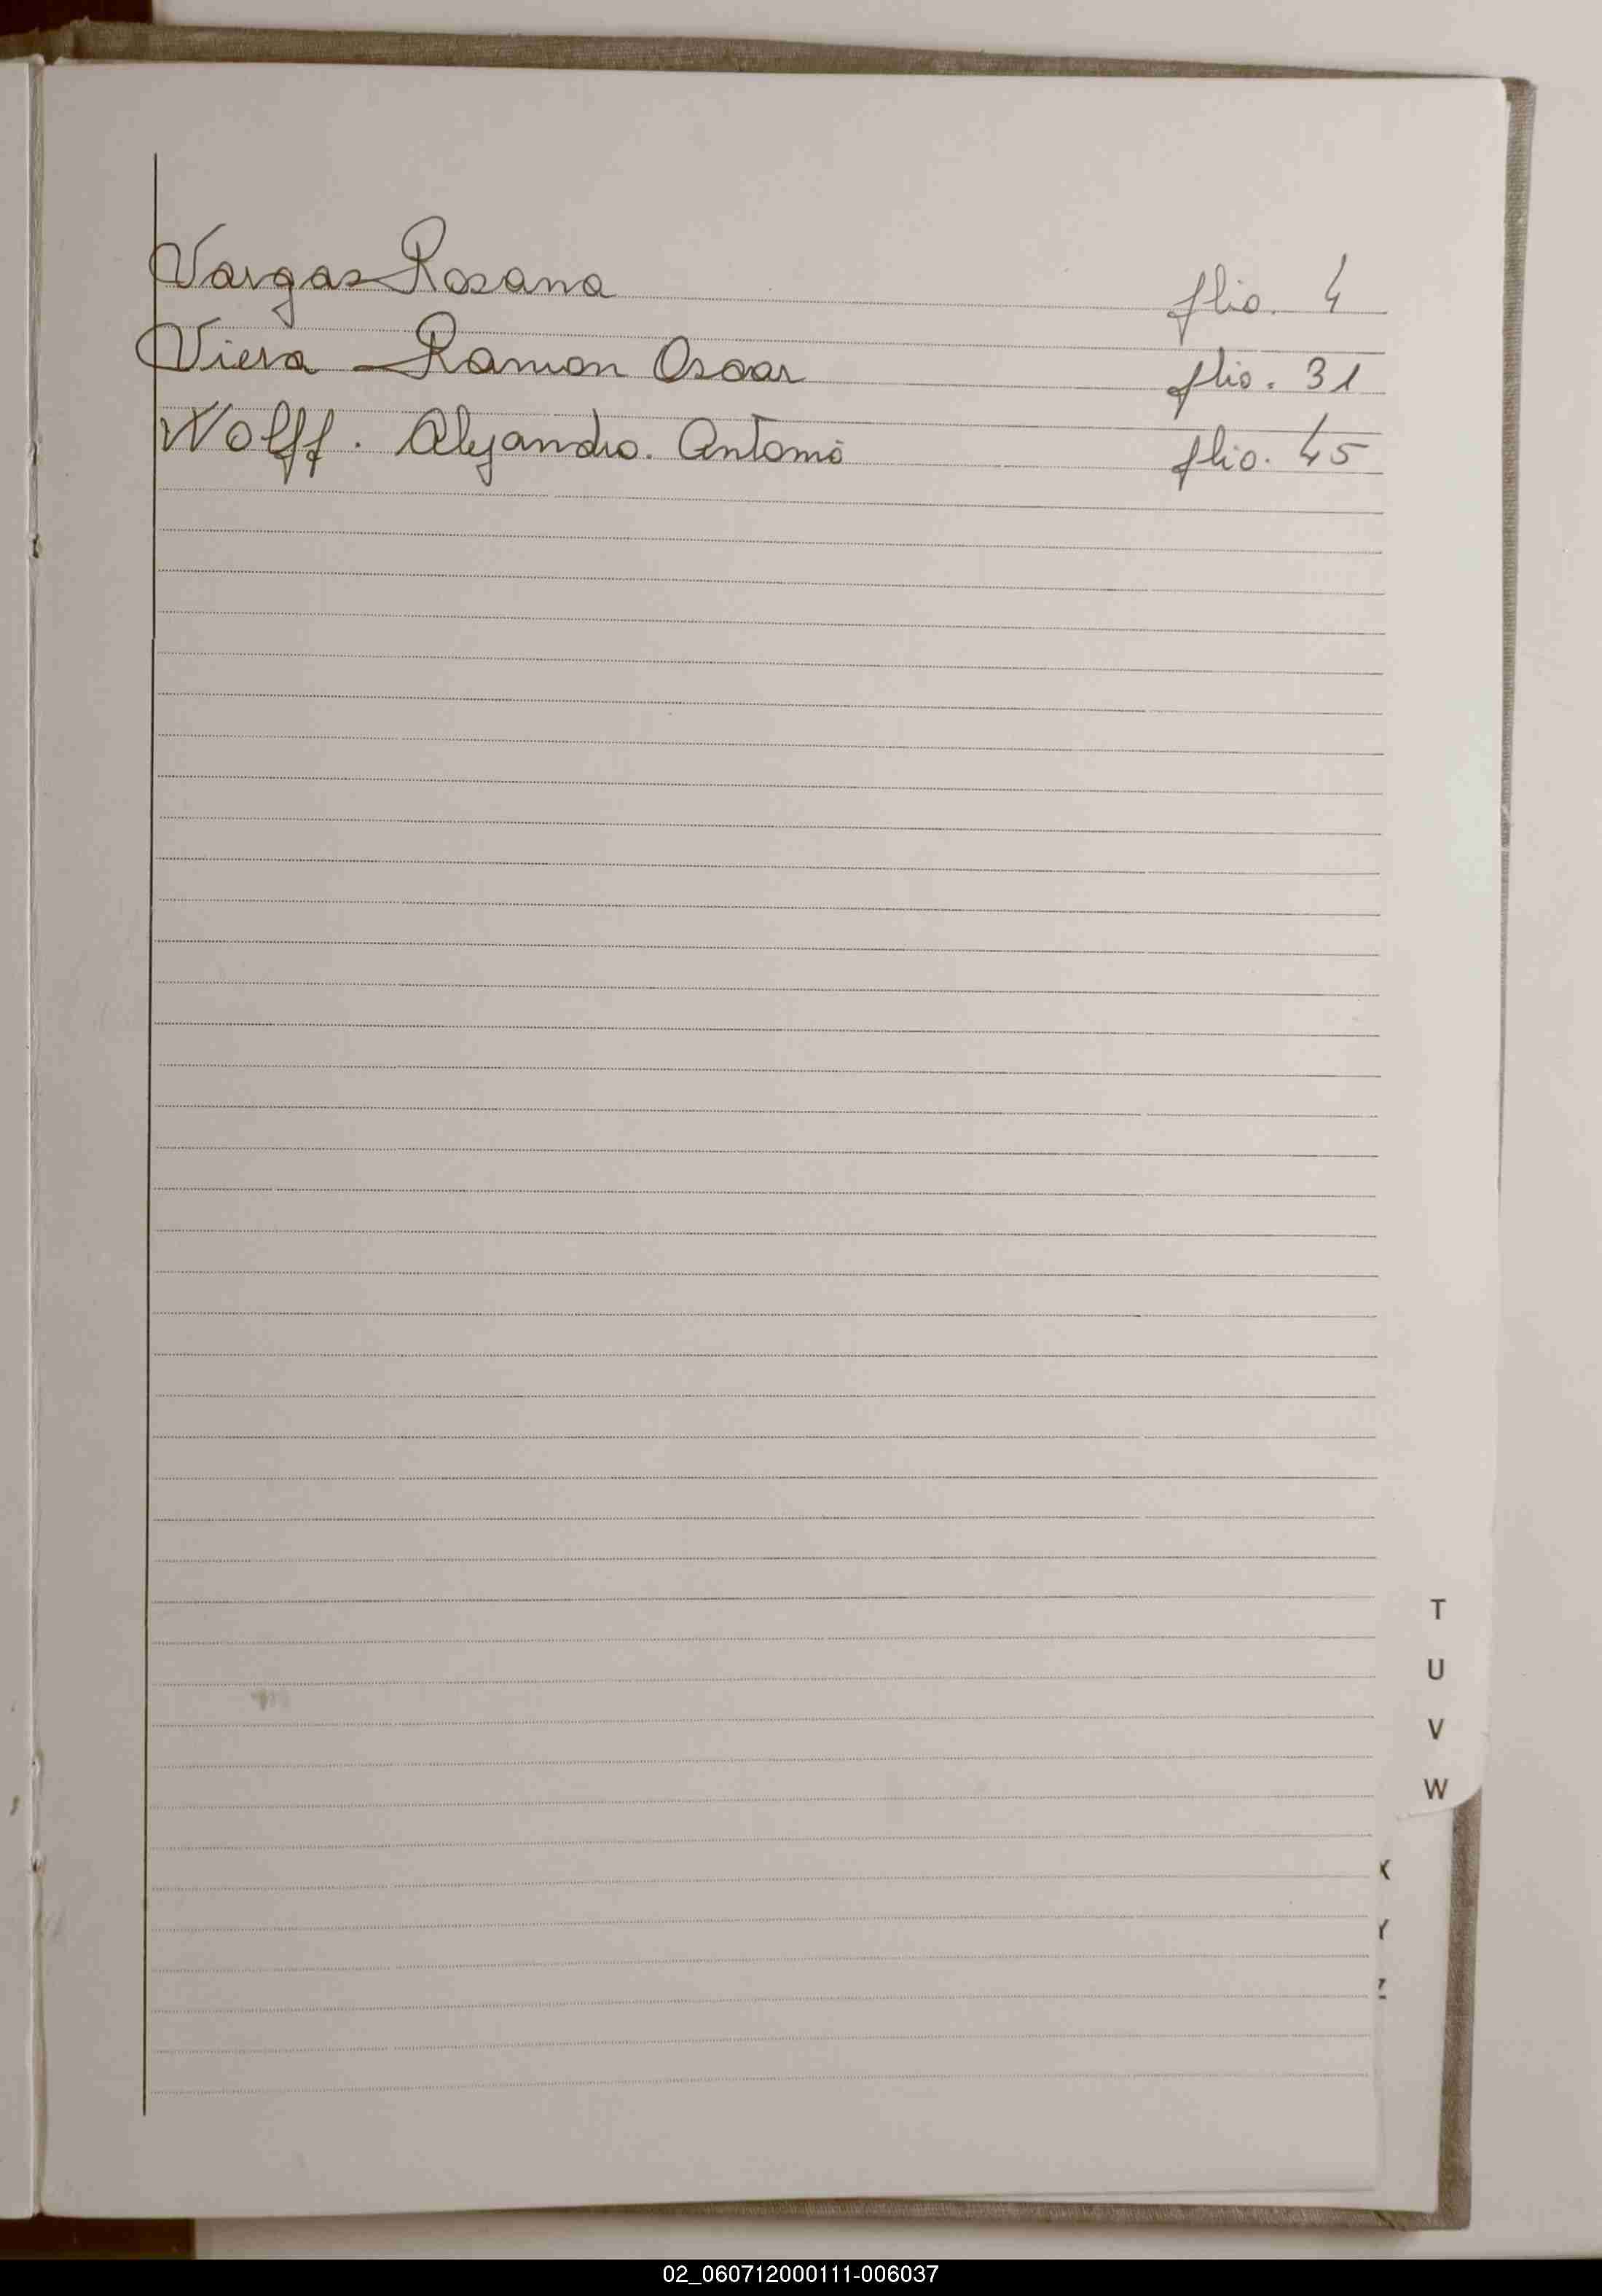 Vargas Rosana flio. 4
Viera Ramon Oscar flio. 31
Wolff. Alejandro. Antonio flio. 45
T
U
V
W
X
Y
Z
02_060712000111-006037